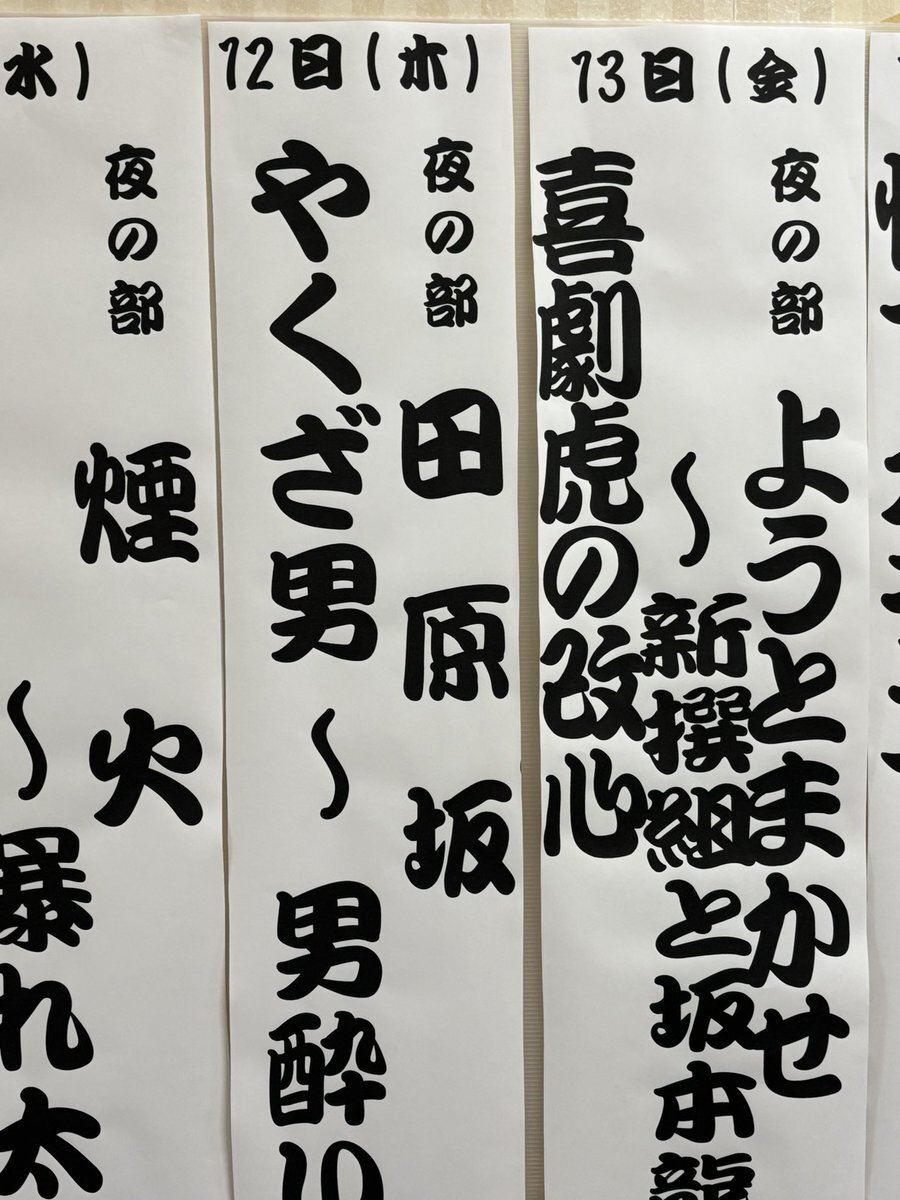 水）
夜の部 煙火
～暴れ太
12日（木）
夜の部 田原坂
やくざ男～男酔い
13日（金）
夜の部 ようとまかせ
～新撰組と坂本龍
喜劇虎の改心